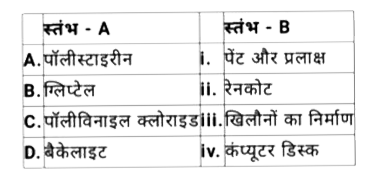 स्तंभ - A स्तंभ - B
A. पॉलीस्टाइरीन i. पेंट और प्रलाक्ष
B. ग्लिप्टेल ii. रेनकोट
C. पॉलीविनाइल क्लोराइड iii. खिलौनों का निर्माण
D. बैकेलाइट iv. कंप्यूटर डिस्क